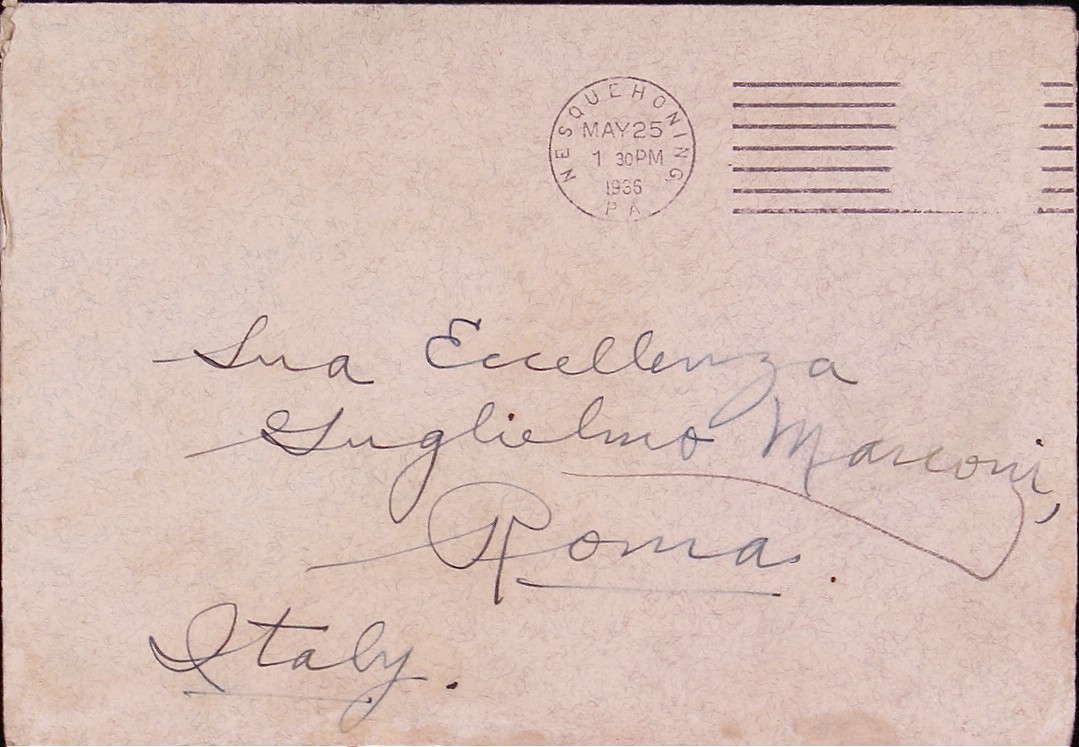 NESQUEHONING
MAY 25
1 30 PM
1936
PA
Sua Eccellenza
Guglielmo Marconi,
Roma.
Italy.